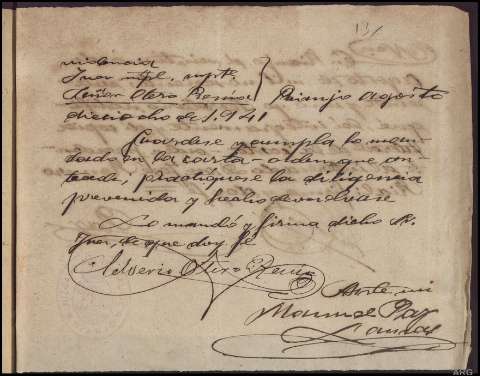 131
videncia
Juez mpl. supte.
Señor Otero Resina
Rianjo agosto
dieciocho de 1.941
Guardese y cumpla lo man-
dado en la carta-orden que an-
tecede, practíquese la diligencia
prevenida y hecho devuelvase
Lo mandó y firma dicho Sr.
Juez, de que doy fé
Otero Resina
Ante mi
Manuel
ARG